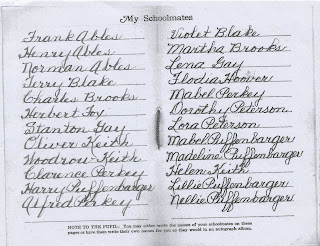 My Schoolmates
Frank Ables
Henry Ables
Norman Ables
Terry Blake
Charles Brooks
Herbert Foy
Stanton Gay
Oliver Keith
Woodrow Keith
Clarence Perkey
Harry Puffenbarger
Alfred Perkey
Violet Blake
Martha Brooks
Lena Gay
Flodia Hoover
Mabel Perkey
Dorothy Peterson
Lora Peterson
Mabel Puffenbarger
Madeline Puffenbarger
Helen Keith
Lillie Puffenbarger
Nellie Puffenbarger
NOTE TO THE PUPIL: You may either write the names of your schoolmates on these
pages or have them write their own names for you as they would in an autograph album.